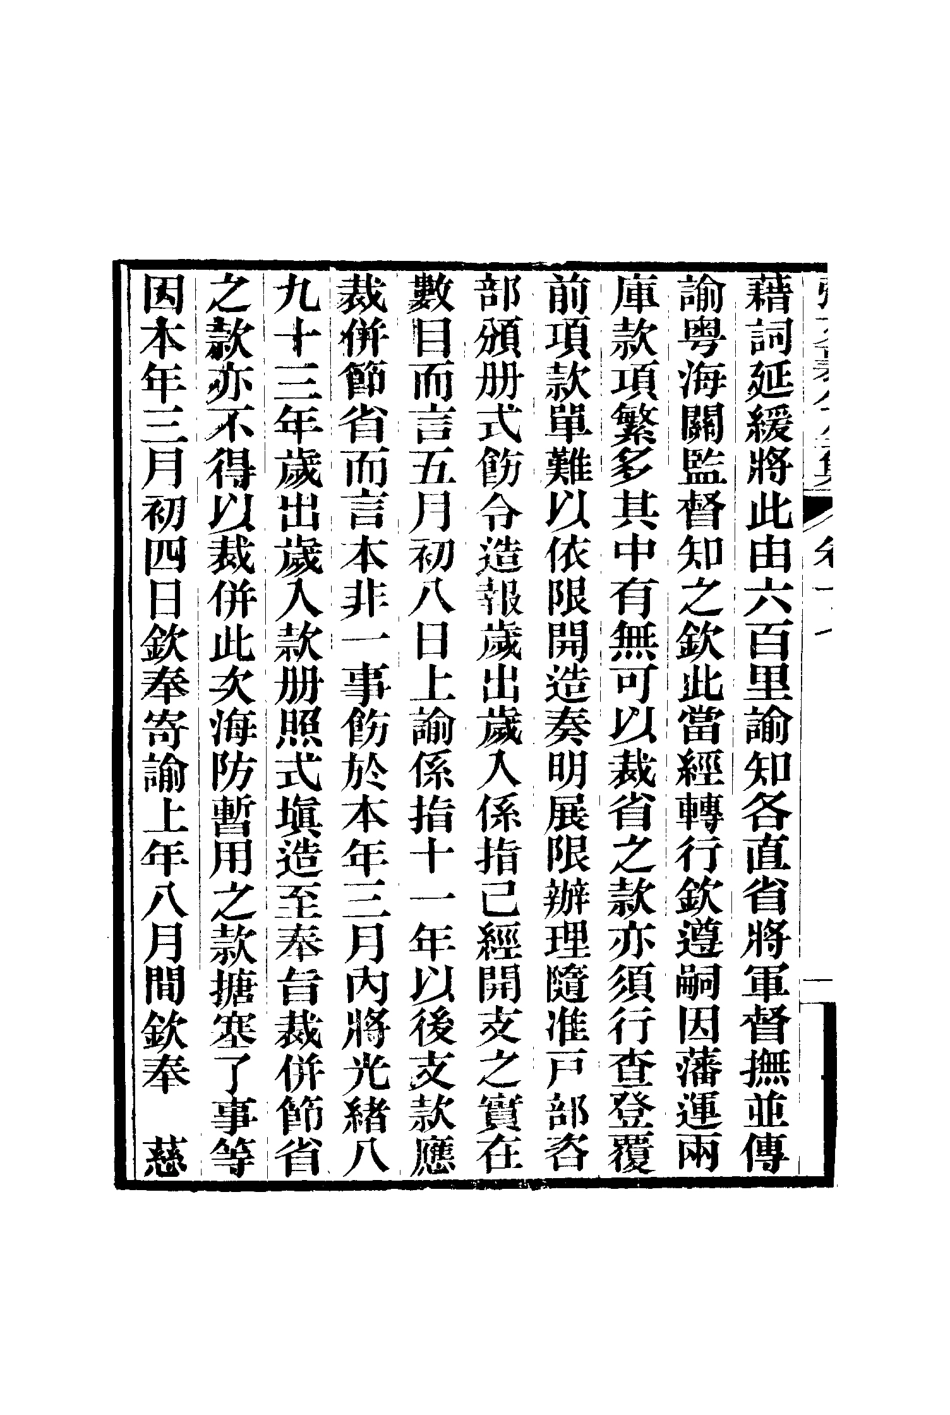 藉詞延緩將此由六百里諭知各直省將軍督撫並傳
諭粤海關監督知之欽此當經轉行欽遵嗣因藩運兩
庫款項繁多其中有無可以裁省之款亦須行查登覆
前項款單難以依限開造奏明展限辦理隨准戸部咨
部頒册式飭令造報歲出歲入係指已經開支之實在
數目而言五月初八日上諭係指十一年以後支款應
裁併節省而言本非一事飭於本年三月內將光緒八
九十三年歲出歲入款册照式塡造至奉旨裁併節省
之款亦不得以裁併此次海防暫用之款搪塞了事等
因本年三月初四日欽奉寄諭上年八月間欽奉　慈